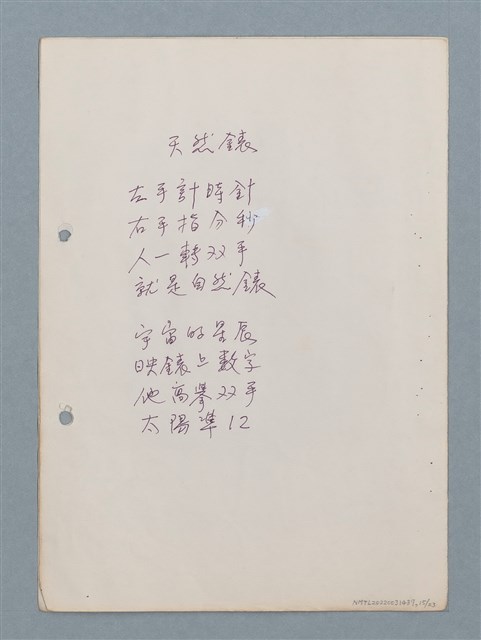 天然錶
左手計時針
右手指分秒
人一轉双手
就是自然錶
宇宙的星辰
映錶上数字
他高舉双手
太陽準12